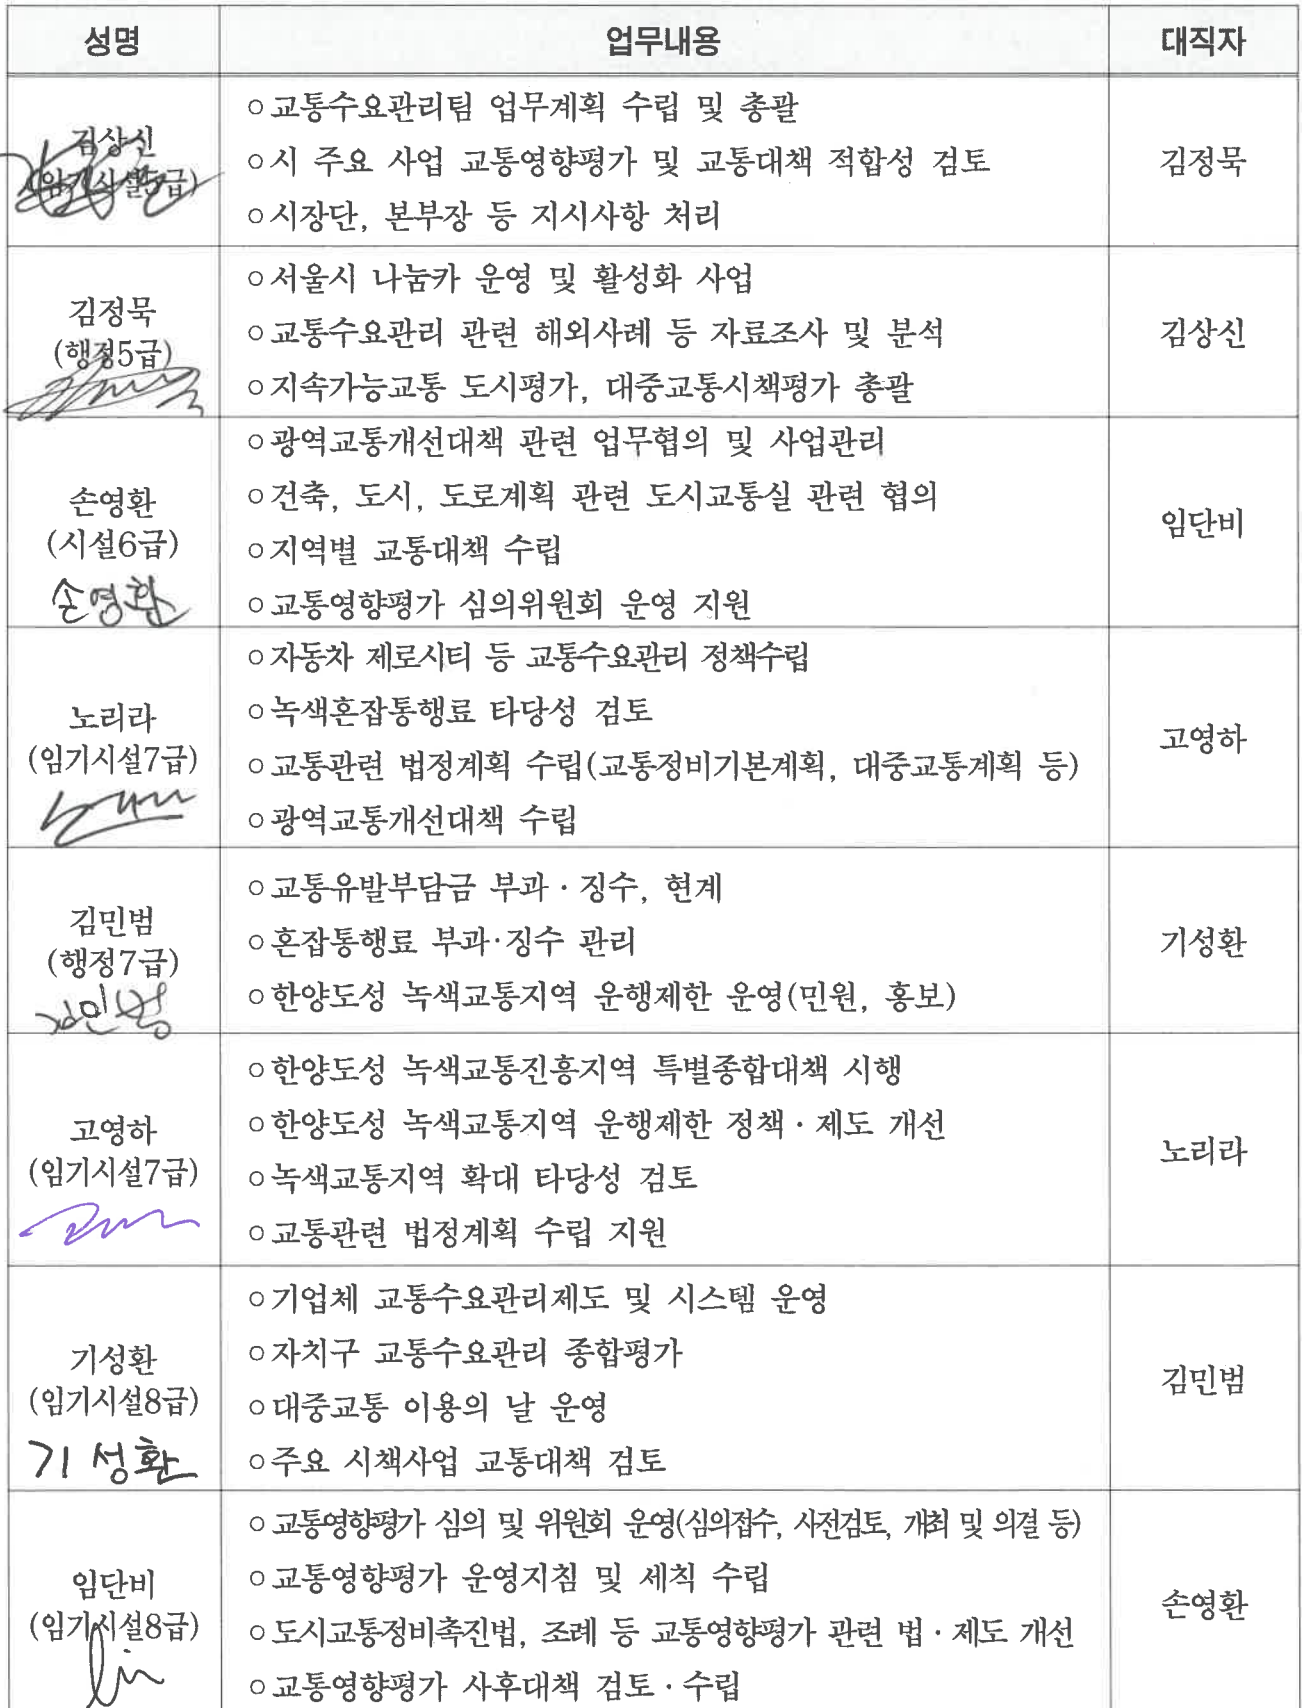 성명 업무내용 대직자
김상신
(임기시설5급)
○교통수요관리팀 업무계획 수립 및 총괄
○시 주요 사업 교통영향평가 및 교통대책 적합성 검토
○시장단, 본부장 등 지시사항 처리
김정묵
김정묵
(행정5급)
○서울시 나눔카 운영 및 활성화 사업
○교통수요관리 관련 해외사례 등 자료조사 및 분석
○지속가능교통 도시평가, 대중교통시책평가 총괄
김상신
손영환
(시설6급)
손영환
○광역교통개선대책 관련 업무협의 및 사업관리
○건축, 도시, 도로계획 관련 도시교통실 관련 협의
○지역별 교통대책 수립
○교통영향평가 심의위원회 운영 지원
임단비
노리라
(임기시설7급)
○자동차 제로시티 등 교통수요관리 정책수립
○녹색혼잡통행료 타당성 검토
○교통관련 법정계획 수립(교통정비기본계획, 대중교통계획 등)
○광역교통개선대책 수립
고영하
김민범
(행정7급)
김민범
○교통유발부담금 부과·징수, 현계
○혼잡통행료 부과·징수 관리
○한양도성 녹색교통지역 운행제한 운영(민원, 홍보)
기성환
고영하
(임기시설7급)
○한양도성 녹색교통진흥지역 특별종합대책 시행
○한양도성 녹색교통지역 운행제한 정책·제도 개선
○녹색교통지역 확대 타당성 검토
○교통관련 법정계획 수립 지원
노리라
기성환
(임기시설8급)
기성환
○기업체 교통수요관리제도 및 시스템 운영
○자치구 교통수요관리 종합평가
○대중교통 이용의 날 운영
○주요 시책사업 교통대책 검토
김민범
임단비
(임기시설8급)
lim
○교통영향평가 심의 및 위원회 운영(심의접수, 사전검토, 개최 및 의결 등)
○교통영향평가 운영지침 및 세칙 수립
○도시교통정비촉진법, 조례 등 교통영향평가 관련 법·제도 개선
○교통영향평가 사후대책 검토·수립
손영환